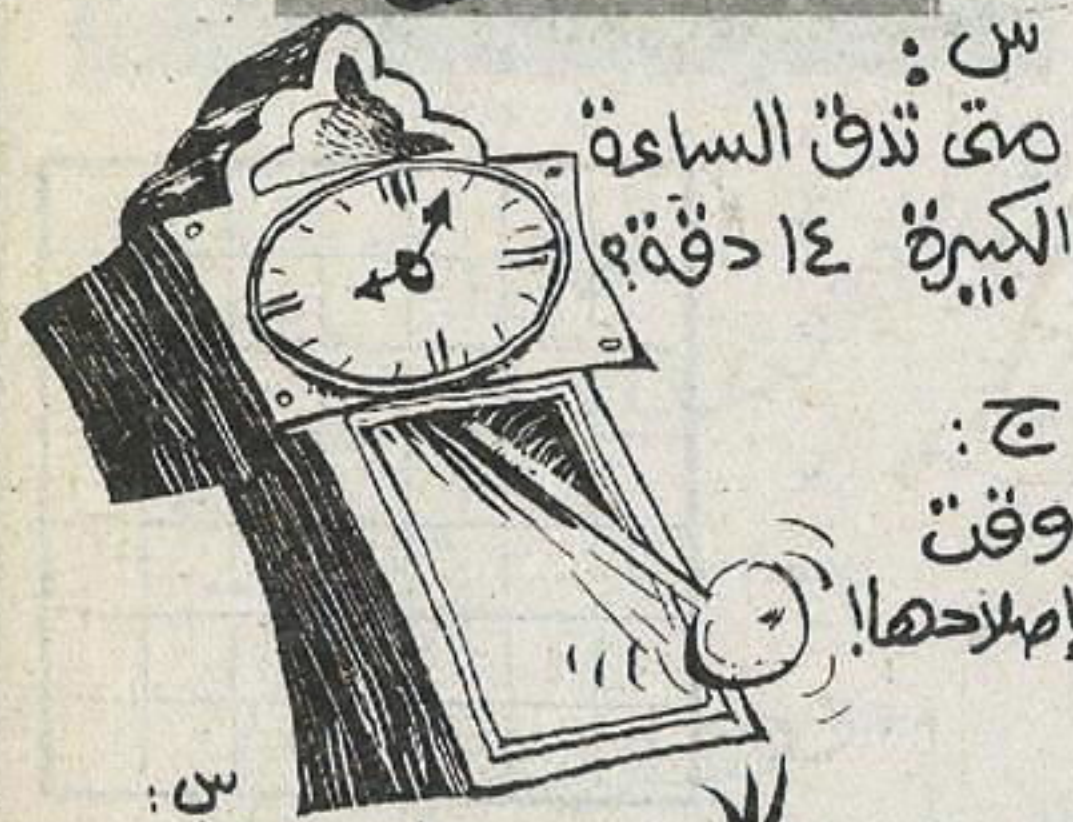 س :
متى تدق الساعة
الكبيرة ١٤ دقة؟
ج :
وقت
إصلاحها!
س :